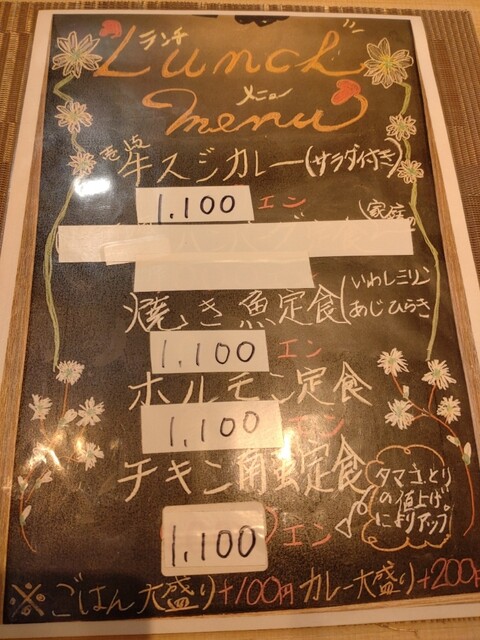 ランチ
Lunch
メニュー
menu
壱岐牛スジカレー(サラダ付き)
1,100 エン
(家庭
焼き魚定食(いわしミリン
あじひらき
1,100 エン
ホルモン定食
1,100 エン
チキン南蛮定食
タマごとトリ
の値上げ
によりアップ
1,100 エン
※ごはん大盛り+100円 カレー大盛り+200円